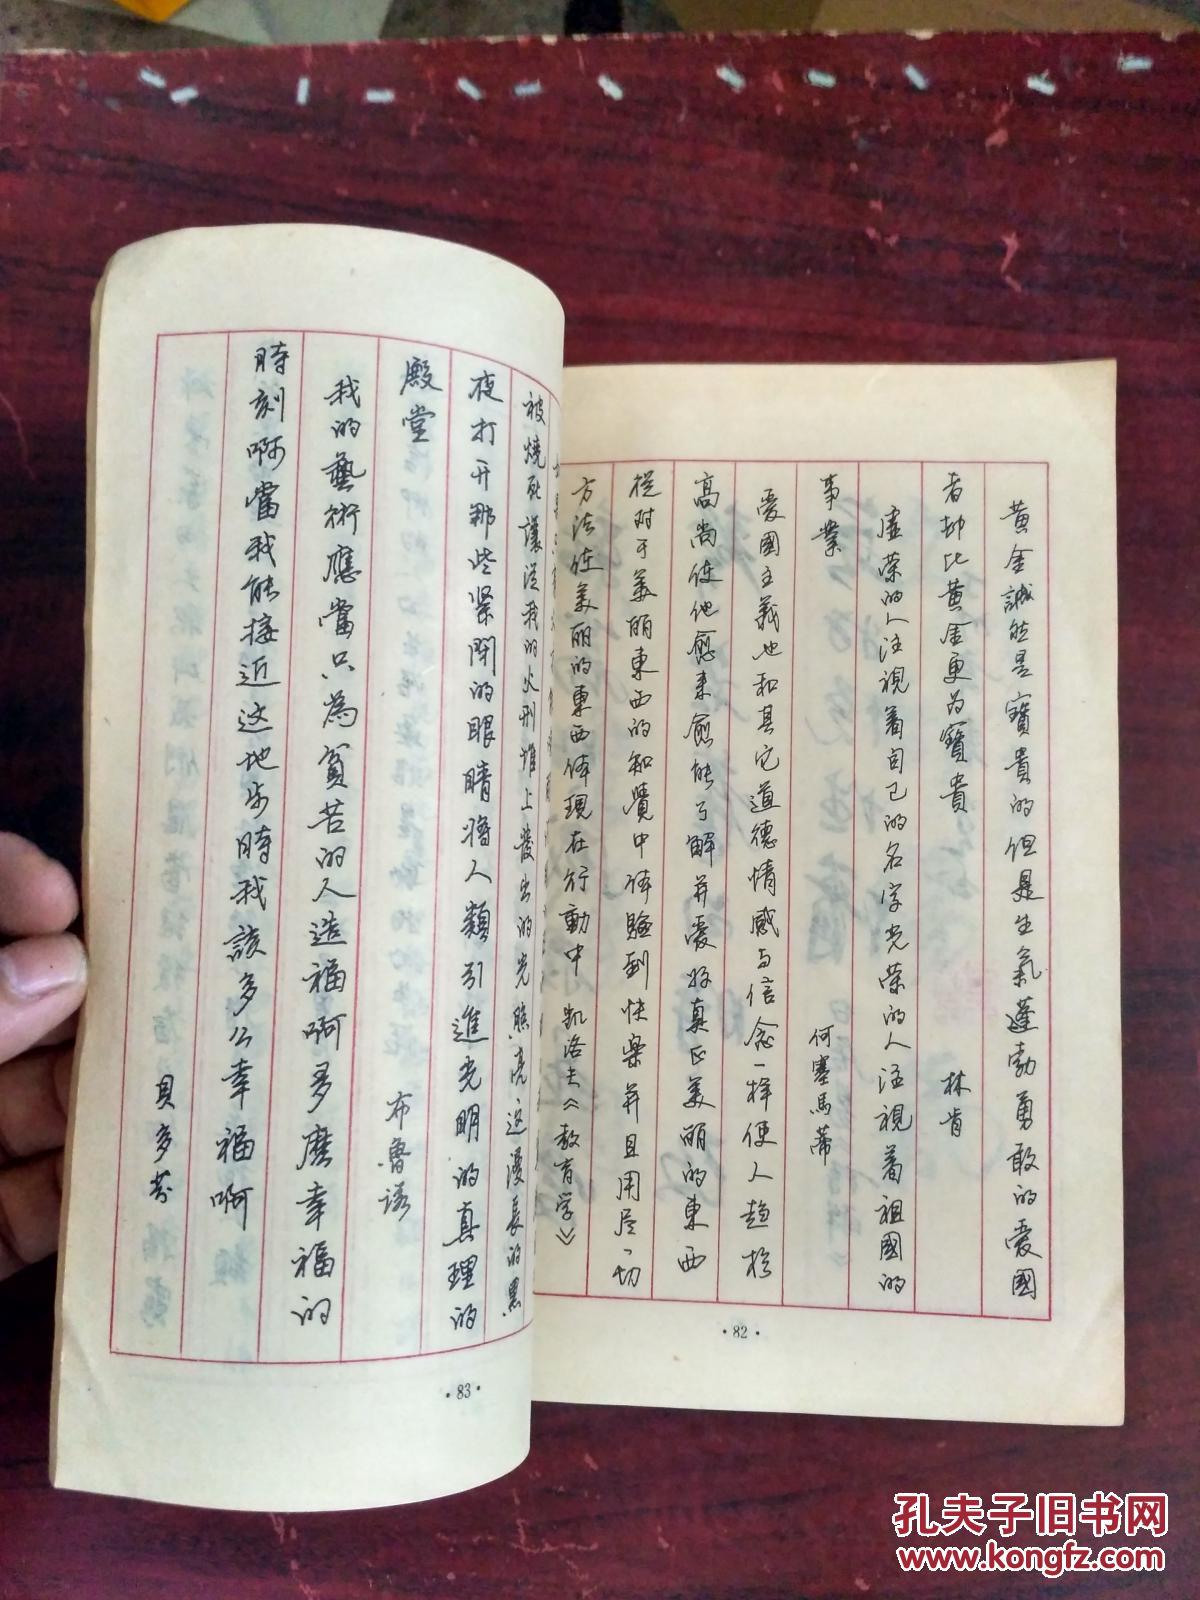 黄金誠然是寶貴的但是生氣蓬勃勇敢的愛國
者却比黄金更为寶貴 林肯
虚荣的人注視着自己的名字光荣的人注視着祖國的
事業 何塞馬蒂
愛國主義也和其它道德情感与信念一样使人趋於
高尚使他愈来愈能了解并愛好真正美丽的東西
從对于美丽東西的知覺中体驗到快樂并且用尽一切
方法使美丽的東西体現在行動中 凯洛夫《教育学》
·82·
被燒死讓從我的火刑堆上發出的光照亮这漫長的黑
夜打开那些紧閉的眼睛將人類引進光明的真理的
殿堂 布魯諾
我的藝術應當只為貧苦的人造福啊多麼幸福的
時刻啊當我能接近这地步時我該多么幸福啊
貝多芬
·83·
孔夫子旧书网
www.kongfz.com